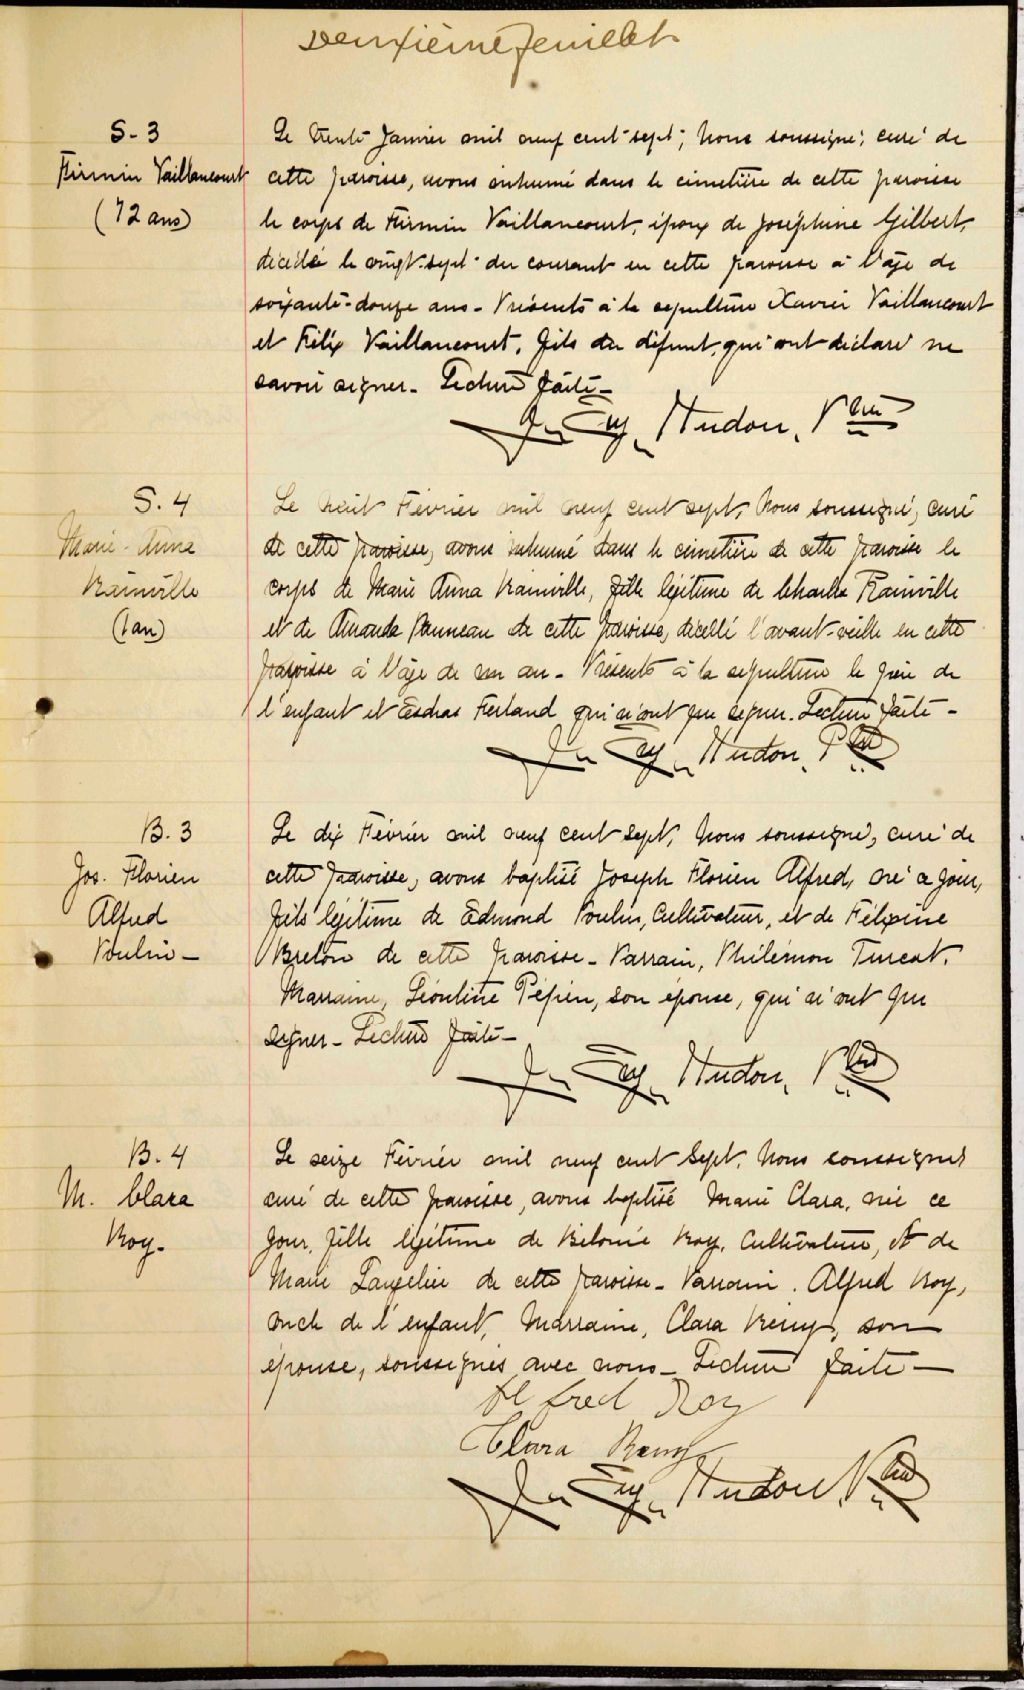 Deuxième feuillet
S-3
Firmin Vaillancourt
(72 ans)
Le trente Janvier mil neuf cent-sept, Nous soussigné, curé de
cette paroisse, avons inhumé dans le cimetière de cette paroisse
le corps de Firmin Vaillancourt, époux de Joséphine Gilbert,
décédé le vingt-sept du courant en cette paroisse à l'âge de
soixante-douze ans - Présents à la sépulture Xavier Vaillancourt
et Félix Vaillancourt, fils du défunt, qui ont déclaré ne
savoir signer - Lecture faite -
J. Eug. Hudon, Ptre
S. 4
Marie-Anna
Rainville
(1 an)
Le huit Février mil neuf cent sept, Nous soussigné, curé
de cette paroisse, avons inhumé dans le cimetière de cette paroisse le
corps de Marie Anna Rainville, fille légitime de Charles Rainville
et de Amanda de cette paroisse, décédé l'avant-veille en cette
paroisse à l'âge de un an - Présents à la sépulture le père de
l'enfant et Esdras Ferland qui n'ont pu signer. Lecture faite -
J. Eug. Hudon, Ptre
B. 3
Jos. Florien
Alfred
Poulin -
Le dix Février mil neuf cent sept, Nous soussigné, curé de
cette paroisse, avons baptisé Joseph Florien Alfred, né ce jour,
fils légitime de Edmond Poulin, Cultivateur, et de Félixine
Breton de cette paroisse - Parrain, Philémon Turcot,
Marraine, Léontine Pépin, son épouse, qui n'ont pu
signer - Lecture faite -
J. Eug. Hudon, Ptre
B. 4
M. Clara
Roy -
Le seize Février mil neuf cent sept, Nous soussigné
curé de cette paroisse, avons baptisé Marie Clara, née ce
jour, fille légitime de Bélonie Roy, Cultivateur, et de
Marie Langelier de cette paroisse - Parrain, Alfred Roy,
oncle de l'enfant, Marraine, Clara Rémy, son
épouse, soussignés avec nous - Lecture faite -
Alfred Roy
Clara Remy
J. Eug. Hudon, Ptre